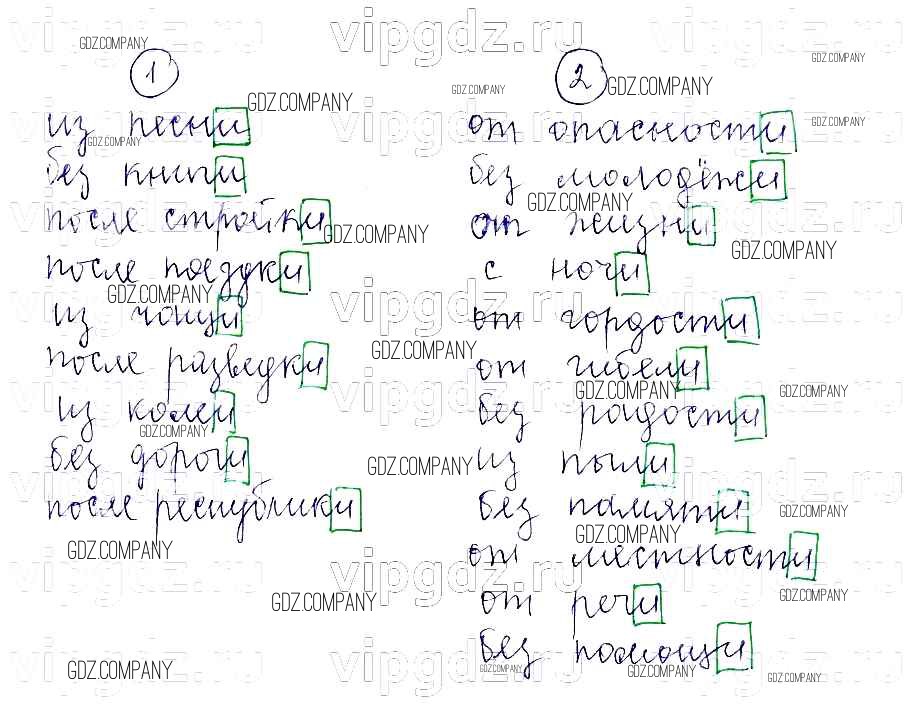 1
из песни
без книги
после стройки
после поездки
из чащи
после разведки
из колеи
без дороги
после республики
2
от опасности
без молодёжи
от жизни
с ночи
от гордости
от гибели
без радости
из пыли
без памяти
от местности
от речи
без помощи
vipgdz.ru
GDZ.COMPANY